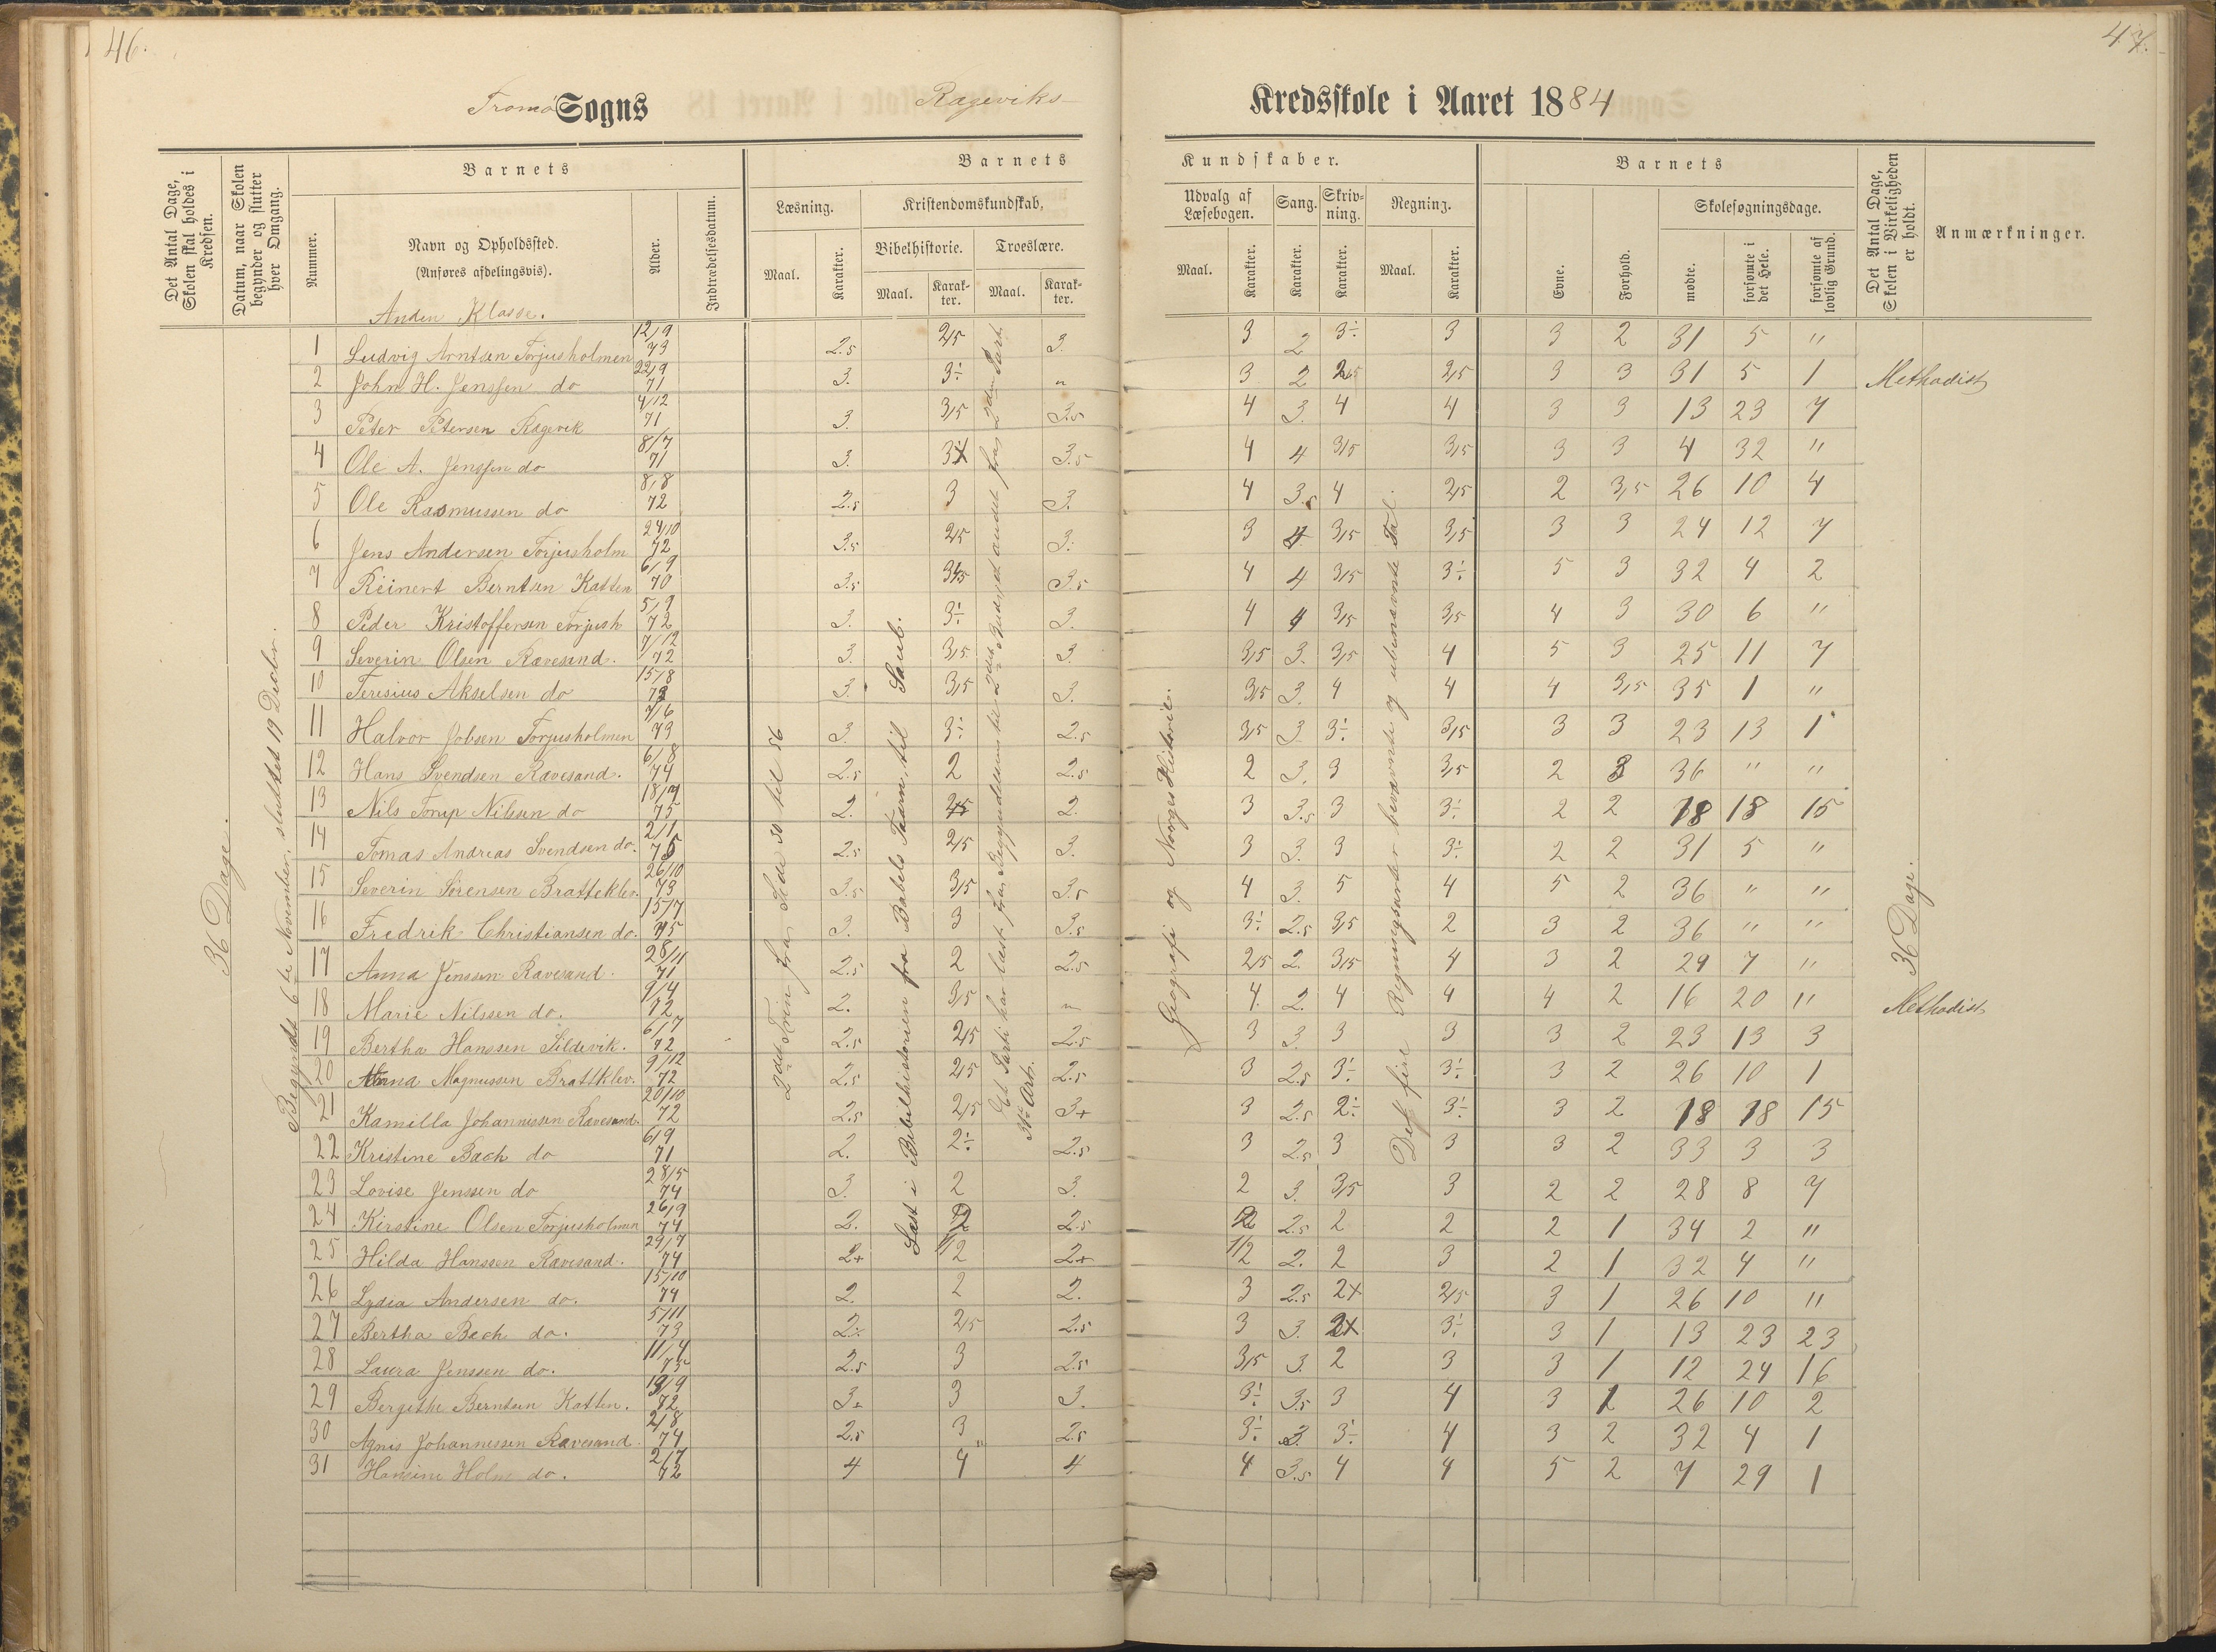 46.
47.
Tromø Sogns Rageviks Kredsskole i Aaret 1884
Det Antal Dage, Skolen skal holdes i Kredsen.
Datum, naar Skolen begynder og slutter hver Omgang.
Nummer.
Barnets
Navn og Opholdssted.
(Anføres afdelingsvis).
Alder.
Indtrædelsesdatum.
Barnets Kundskaber.
Læsning.
Maal.
Karakter.
Kristendomskundskab.
Bibelhistorie.
Maal.
Karakter.
Troeslære.
Maal.
Karakter.
Udvalg af Læsebogen.
Maal.
Karakter.
Sang.
Karakter.
Skrivning.
Karakter.
Regning.
Maal.
Karakter.
Barnets
Evne.
Forhold.
Skolesøgningsdage.
mødte.
forsømte i det Hele.
forsømte af lovlig Grund.
Det Antal Dage, Skolen i Virkeligheden er holdt.
Anmærkninger.
Anden Klasse.
36 Dage.
Begyndte 6te November, sluttet 19 Decbr.
2det Trin fra Side 30 til 56
Læst i Bibelhistorien fra Babels Taarn til Saul.
Geografi og Norges Historie.
De fire Regningsarter benævnte og ubenævnte Tal.
36 Dage.
1 Ludvig Arntsen Torjusholmen 12/9 73 2.5 2,5 3. 3 2 3÷ 3 3 2 31 5 "
2 John H. Jenssen do 22/9 71 3. 3÷ " 3 2 2,5 2,5 3 3 31 5 1 Methodist
3 Peter Petersen Ragevik 4/12 71 3. 3,5 3.5 4 3. 4 4 3 3 13 23 7
4 Ole A. Jenssen do 8/7 71 3. 3.5 4 4 3,5 3,5 3 3 4 32 "
5 Ole Rasmussen do 8/8 72 2.5 3 3. 4 3.5 4 2,5 2 3,5 26 10 4
6 Jens Andersen Torjusholm 24/10 72 3.5 2,5 3. 3 4 3,5 3,5 3 3 24 12 7
7 Reinert Berntsen Katten 6/9 70 3.5 3,5 3.5 4 4 3,5 3÷ 5 3 32 4 2
8 Peder Kristoffersen Torjush 5/9 72 3. 3÷ 3. 4 4 3,5 3,5 4 3 30 6 "
9 Severin Olsen Rævesand. 7/12 72 3. 3,5 3. 3,5 3. 3,5 4 5 3 25 11 7
10 Teresius Akselsen do 15/8 3. 3,5 3. 3,5 3. 4 4 4 3,5 35 1 "
11 Halvor Jobsen Torjusholmen 7/6 73 3. 3÷ 2.5 3,5 3. 3÷ 3,5 3 3 23 13 1
12 Hans Svendsen Rævesand. 6/8 74 2.5 2 2.5 2 3. 3 3,5 2 3 36 " "
13 Nils Torup Nilssen do 75 2. 2. 3 3.5 3 3÷ 2 2 18 18 15
14 Tomas Andreas Svendsen do. 2/1 75 2.5 2,5 3. 3 3. 3 3÷ 2 2 31 5 "
15 Severin Sørensen Bratteklev. 26/10 73 3.5 3,5 3.5 4 3. 5 4 5 2 36 " "
16 Fredrik Christiansen do. 15/7 75 3. 3 3.5 3÷ 2.5 3,5 2 3 2 36 " "
17 Anna Jenssen Rævesand. 28/11 71 2.5 2 2.5 2,5 2. 3,5 4 3 2 29 7 "
18 Marie Nilssen do. 9/4 72 2. 3,5 " 4 2. 4 4 4 2 16 20 " Methodist
19 Bertha Hanssen Sildevik. 6/7 72 2.5 2,5 2.5 3 3. 3 3 3 2 23 13 3
20 Anna Magnussen Brattklev. 9/12 72 2.5 2,5 2.5 3 2.5 3÷ 3÷ 3 2 26 10 1
21 Kamilla Johannessen Rævesand. 20/10 72 2.5 2,5 3+ 3 2.5 2÷ 3÷ 3 2 18 18 15
22 Kristine Bach do 6/9 71 2. 2÷ 2.5 3 2.5 3 3 3 2 33 3 3
23 Lovise Jenssen do 28/5 74 3. 2 3. 2 3. 3,5 3 2 2 28 8 7
24 Kirstine Olsen Torjusholmen 26/9 74 2. 2 2.5 2.5 2 2 2 1 34 2 "
25 Hilda Hanssen Rævesand. 29/7 74 2+ 1/2 2+ 1/2 2. 2 3 2 1 32 4 "
26 Lydia Andersen do. 15/10 74 2. 2 2. 3 2.5 2+ 2,5 3 1 26 10 "
27 Bertha Bach do. 5/11 73 2÷ 2,5 2.5 3 3. 2+ 3÷ 3 1 13 23 23
28 Laura Jenssen do. 11/4 75 2.5 3 2.5 3,5 3. 2 3 3 1 12 24 16
29 Bergithe Berntsen Katten. 72 3+ 3 3. 3÷ 3.5 3 4 3 1 26 10 2
30 Agnes Johannessen Rævesand. 2/8 74 2.5 3 2.5 3÷ 3. 3÷ 4 3 2 32 4 1
31 Hansine Holm do. 2/7 72 4 4 4 4 3.5 4 4 5 2 7 29 1